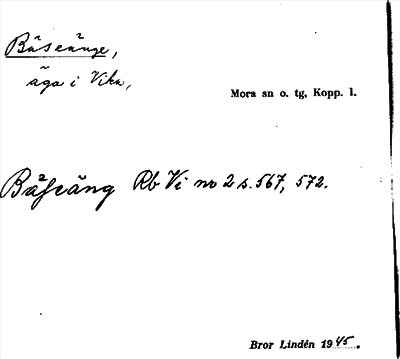 Bäsenänge,
äga i Vika,
Mora sn o. tg, Kopp. l.
Rb Vi no 2 s. 567, 572.
Bror Lindén 1945.